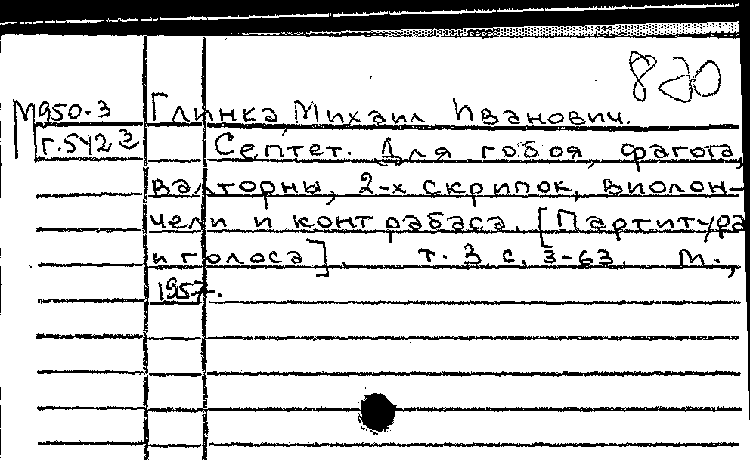 820
М950-3 Глинка, Михаил Иванович.
Г.542 Септет. Для гобоя, фагота,
валторны, 2-х скрипок, виолон-
чели и контрабаса. [Партитура
и голоса]. т. 3 с. 3-63. М.,
1957.